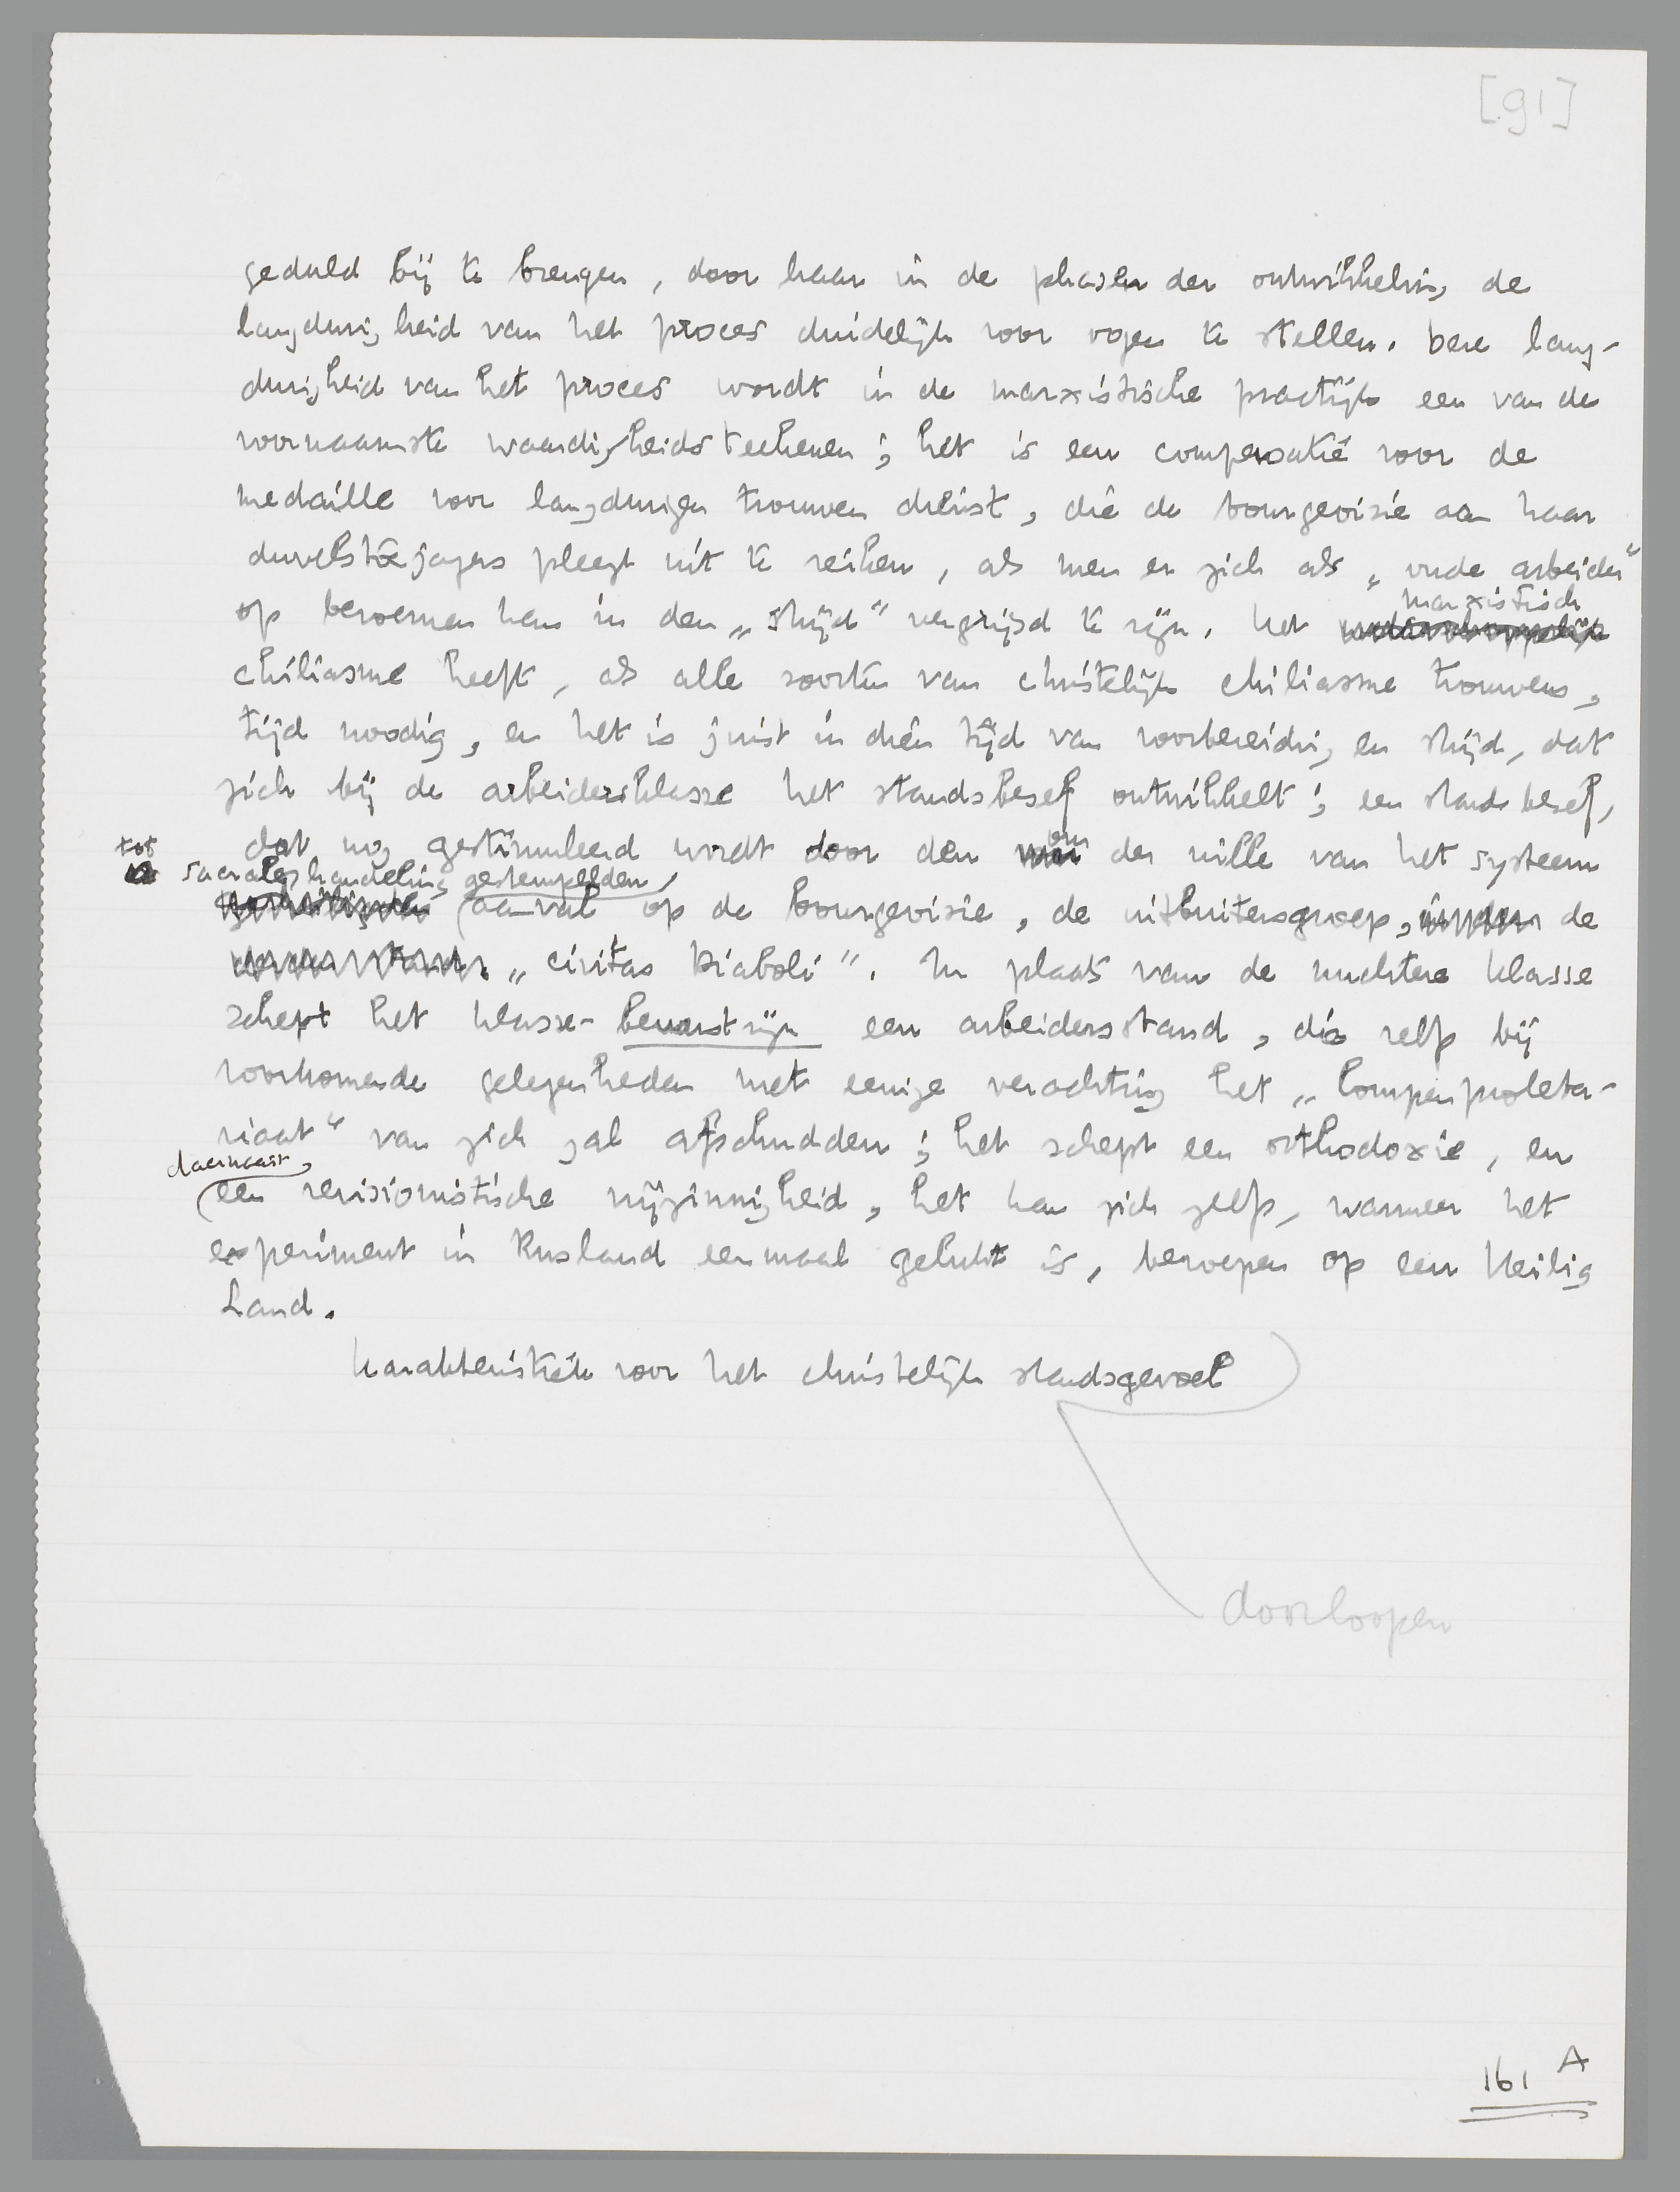 [91]
geduld bij te brengen, door haar in de phasen der ontwikkeling de
langdurigheid van het proces duidelijk voor oogen te stellen. Deze lang-
durigheid van het proces wordt in de marxistische practijk een van de
voornaamste waardigheidsteekenen; het is een compensatie voor de
medaille voor langdurigen trouwen dienst, die de bourgeoisie aan haar
duvelstoejagers pleegt uit te reiken, als men er zich als „oude arbeider"
op beroemen kan in den „strijd" vergrijsd te zijn. Het marxistisch
chiliasme heeft, als alle soorten van christelijk chiliasme trouwens,
tijd noodig, en het is juist in dien tijd van voorbereiding en strijd, dat
zich bij de arbeidersklasse het standsbesef ontwikkelt; een standsbesef,
dat nog gestimuleerd wordt door den om der wille van het systeem
tot sacrale handeling gestempelden
aanval op de bourgeoisie, de uitbuitersgroep, de
„civitas Diaboli". In plaats van de nuchtere klasse
schept het klasse-bewustzijn een arbeidersstand, die zelf bij
voorkomende gelegenheden met eenige verachting het „lompenproleta-
riaat" van zich zal afschudden; het schept een orthodoxie, en
daarnaast,
een revisionistische vrijzinnigheid, het kan zich zelf, wanneer het
experiment in Rusland eenmaal gelukt is, beroepen op een Heilig
Land.
Karakteristiek voor het christelijk standsgevoel
doorloopen
161 A